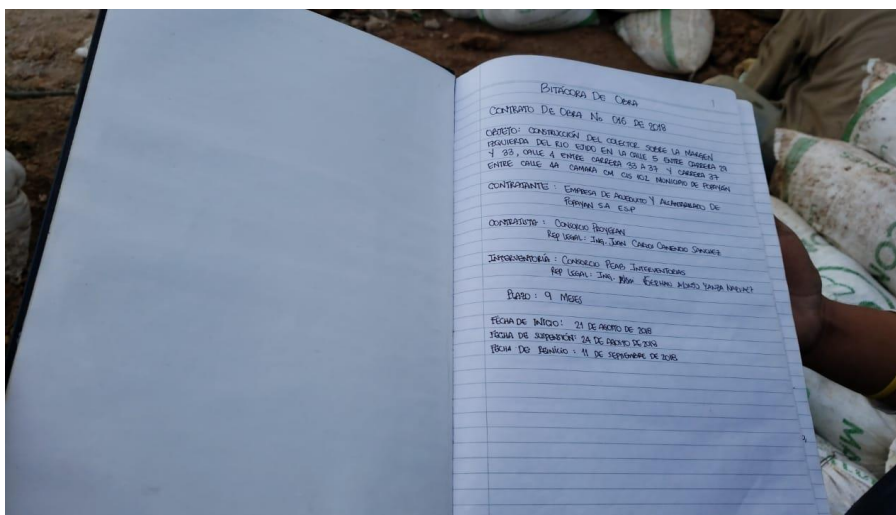 1
BITÁCORA DE OBRA
CONTRATO DE OBRA No 016 DE 2018
OBJETO: CONSTRUCCIÓN DEL COLECTOR SOBRE LA MARGEN
IZQUIERDA DEL RIO EJIDO EN LA CALLE 5 ENTRE CARRERA 29
Y 33, CALLE 4 ENTRE CARRERA 33 A 37 Y CARRERA 37
ENTRE CALLE 4A CAMARA CM CIS 102 MUNICIPIO DE POPAYÁN
CONTRATANTE : EMPRESA DE ACUEDUCTO Y ALCANTARILLADO DE
POPAYAN S.A E.S.P
CONTRATISTA : CONSORCIO
REP LEGAL : ING. JUAN CARLOS SANCHEZ
INTERVENTORÍA : CONSORCIO PEAB INTERVENTORIAS
REP LEGAL : ING.
PLAZO : 9 MESES
FECHA DE INICIO : 21 DE AGOSTO DE 2018
FECHA DE SUSPENSIÓN: 24 DE AGOSTO DE 2018
FECHA DE REINICIO : 11 DE SEPTIEMBRE DE 2018
3